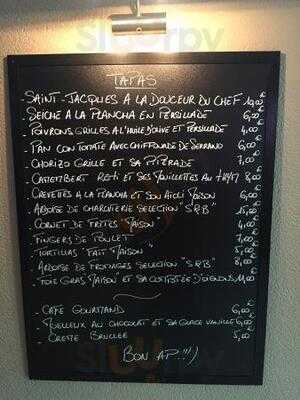 TAPAS
- SAINT-JACQUES A LA DOUCEUR DU CHEF 10,00 €
- SEICHE A LA PLANCHA EN PERSILLADE 6,00 €
- POIVRONS GRILLES A L'HUILE D'OLIVE ET PERSILLADE 4,00 €
- PAN CON TOMATE AVEC CHIFFONNADE DE SERRANO 6,00 €
- CHORIZO GRILLE ET SA PIPERADE 7,00 €
- CAMEMBERT ROTI ET SES MOUILLETTES AU THYM 8,00 €
- CREVETTES A LA PLANCHA ET SON AIOLI MAISON 6,00 €
- ARDOISE DE CHARCUTERIE SELECTION "S.R.B" 15,00 €
- CORNET DE FRITES MAISON 4,00 €
- FINGERS DE POULET " 7,00 €
- TORTILLAS FAIT MAISON " 5,00 €
- ARDOISE DE FROMAGES SELECTION "S.R.B" 8,00 €
- FOIE GRAS MAISON ET SA COMPOTEE D'OIGNONS 11,00 €
- CAFE GOURMAND 6,00 €
- MOELLEUX AU CHOCOLAT ET SA GLACE VANILLE 6,00 €
CREME BRULEE 5,00
BON AP'!!!)